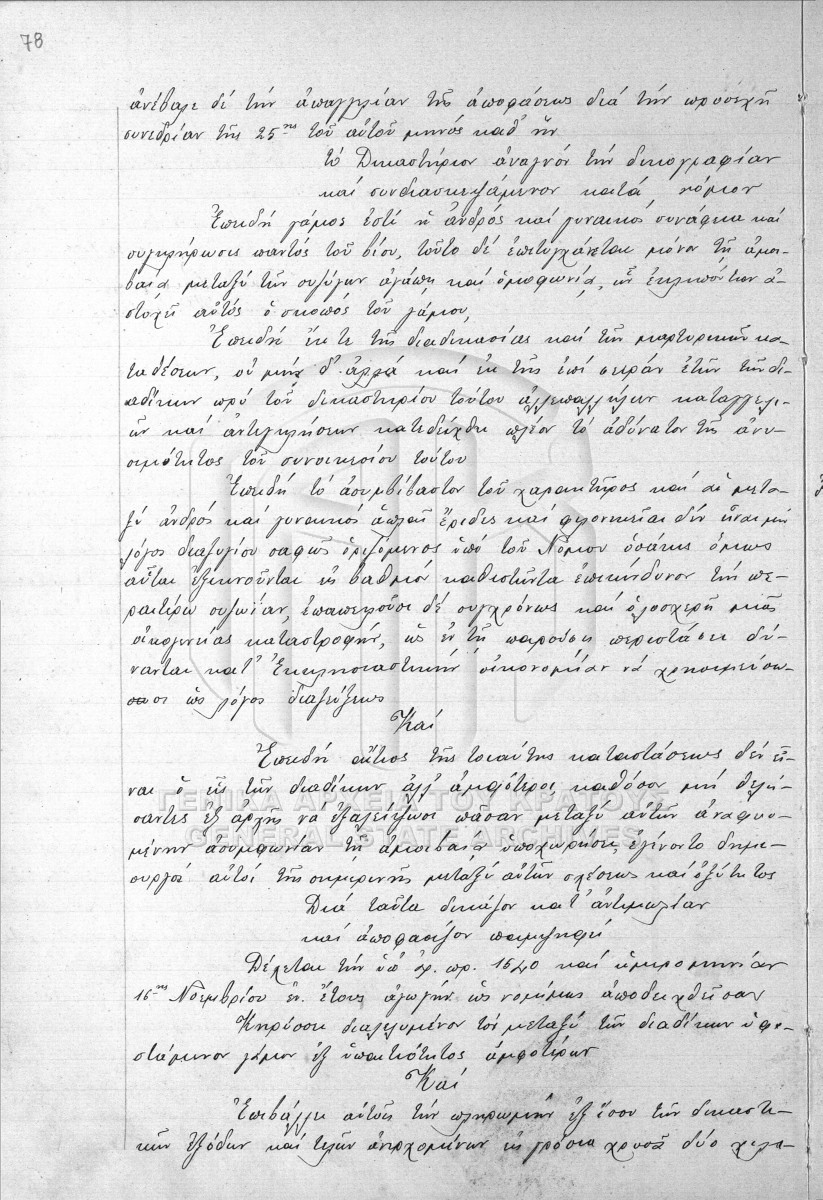 78
ἀνέβαλε δέ τήν ἀπαγγελίαν τῆς ἀποφάσεως διά τήν προσεχῆ
συνεδρίαν τῆς 25ης τοῦ αὐτοῦ μηνός καθ' ἥν
τό Δικαστήριον ἀναγνόν τήν δικογραφίαν
καί συνδιασκεψάμενον κατά νόμον
Ἐπειδή γάμος ἐστί ἡ ἀνδρός καί γυναικός συνάφεια καί
συγκλήρωσις παντός τοῦ βίου, τοῦτο δέ ἐπιτυγχάνεται μόνον τῇ ἀμοι-
βαίᾳ μεταξύ τῶν συζύγων ἀγάπῃ καί ὁμοφωνίᾳ, ὧν ἐκλιπόντων ἀ-
στοχῆ αὐτός ὁ σκοπός τοῦ γάμου,
Ἐπειδή ἐκ τε τῆς διαδικασίας καί τῶν μαρτυρικῶν κα-
ταθέσεων, οὐ μήν δ' ἀλλά καί ἐκ τῆς ἐπί σειράν ἐτῶν τῶν δι-
αδίκων πρό τοῦ δικαστηρίου τούτου ἀλλεπαλλήλων καταγγελι-
ῶν καί ἀντεγκλήσεων κατεδείχθη πλέον τό ἀδύνατον τῆς ἀνυ-
σιμότητος τοῦ συνοικεσίου τούτου
Ἐπειδή τό ἀσυμβίβαστον τοῦ χαρακτῆρος καί αἱ μετα-
ξύ ἀνδρός καί γυναικός ἁπλαῖ ἔριδες καί φιλονικεῖαι δέν εἶναι μέν
λόγος διαζυγίου σαφῶς ὁριζόμενος ὑπό τοῦ Νόμου ὁσάκις ὅμως
αὗται ἐξικνοῦνται εἰς βαθμόν καθιστῶντα ἐπικίνδυνον τήν πε-
ραιτέρω συζωΐαν, ἐπαπειλοῦσι δέ συγχρόνως καί ὁλοσχερῆ μιᾶς
οἰκογενείας καταστροφήν, ὡς ἐν τῇ παρούσῃ περιστάσει δύ-
νανται κατ' Ἐκκλησιαστικήν οἰκονομίαν νά χρησιμεύσω-
σι ὡς λόγος διαζεύξεως
Καί
Ἐπειδή αἴτιος τῆς τοιαύτης καταστάσεως δέν εἶ-
ναι ὁ εἷς τῶν διαδίκων ἀλλ' ἀμφότεροι, καθόσον μή θελή-
σαντες ἐξ ἀρχῆς νά ἐξαλείψωσι πᾶσαν μεταξύ αὐτῶν ἀναφυο-
μένην ἀσυμφωνίαν τῇ ἀμοιβαίᾳ ὑποχωρήσει, ἐγένοντο δημι-
ουργοί αὐτοί τῆς σημερινῆς μεταξύ αὐτῶν σχέσεως καί ὀξύτητος
Διά ταῦτα δικάζον κατ' ἀντιμωλίαν
καί ἀποφασίζον παμψηφεί
Δέχεται τήν ὑπ' ἀρ. πρ. 1540 καί ἡμερομηνίαν
16ης Νοεμβρίου ἐν. ἔτους ἀγωγήν ὡς νομίμως ἀποδειχθεῖσαν
Κηρύσσει διαλελυμένον τόν μεταξύ τῶν διαδίκων ὑφι-
στάμενον γάμον ἐξ ὑπαιτιότητος ἀμφοτέρων
Καί
Ἐπιβάλλει αὐτοῖς τήν πληρωμήν ἐξ ἴσου τῶν δικαστι-
κῶν ἐξόδων καί τελῶν ἀνερχομένων εἰς γρόσια χρυσᾶ δύο χιλι-
ΓΕΝΙΚΑ ΑΡΧΕΙΑ ΤΟΥ ΚΡΑΤΟΥΣ
GENERAL STATE ARCHIVES